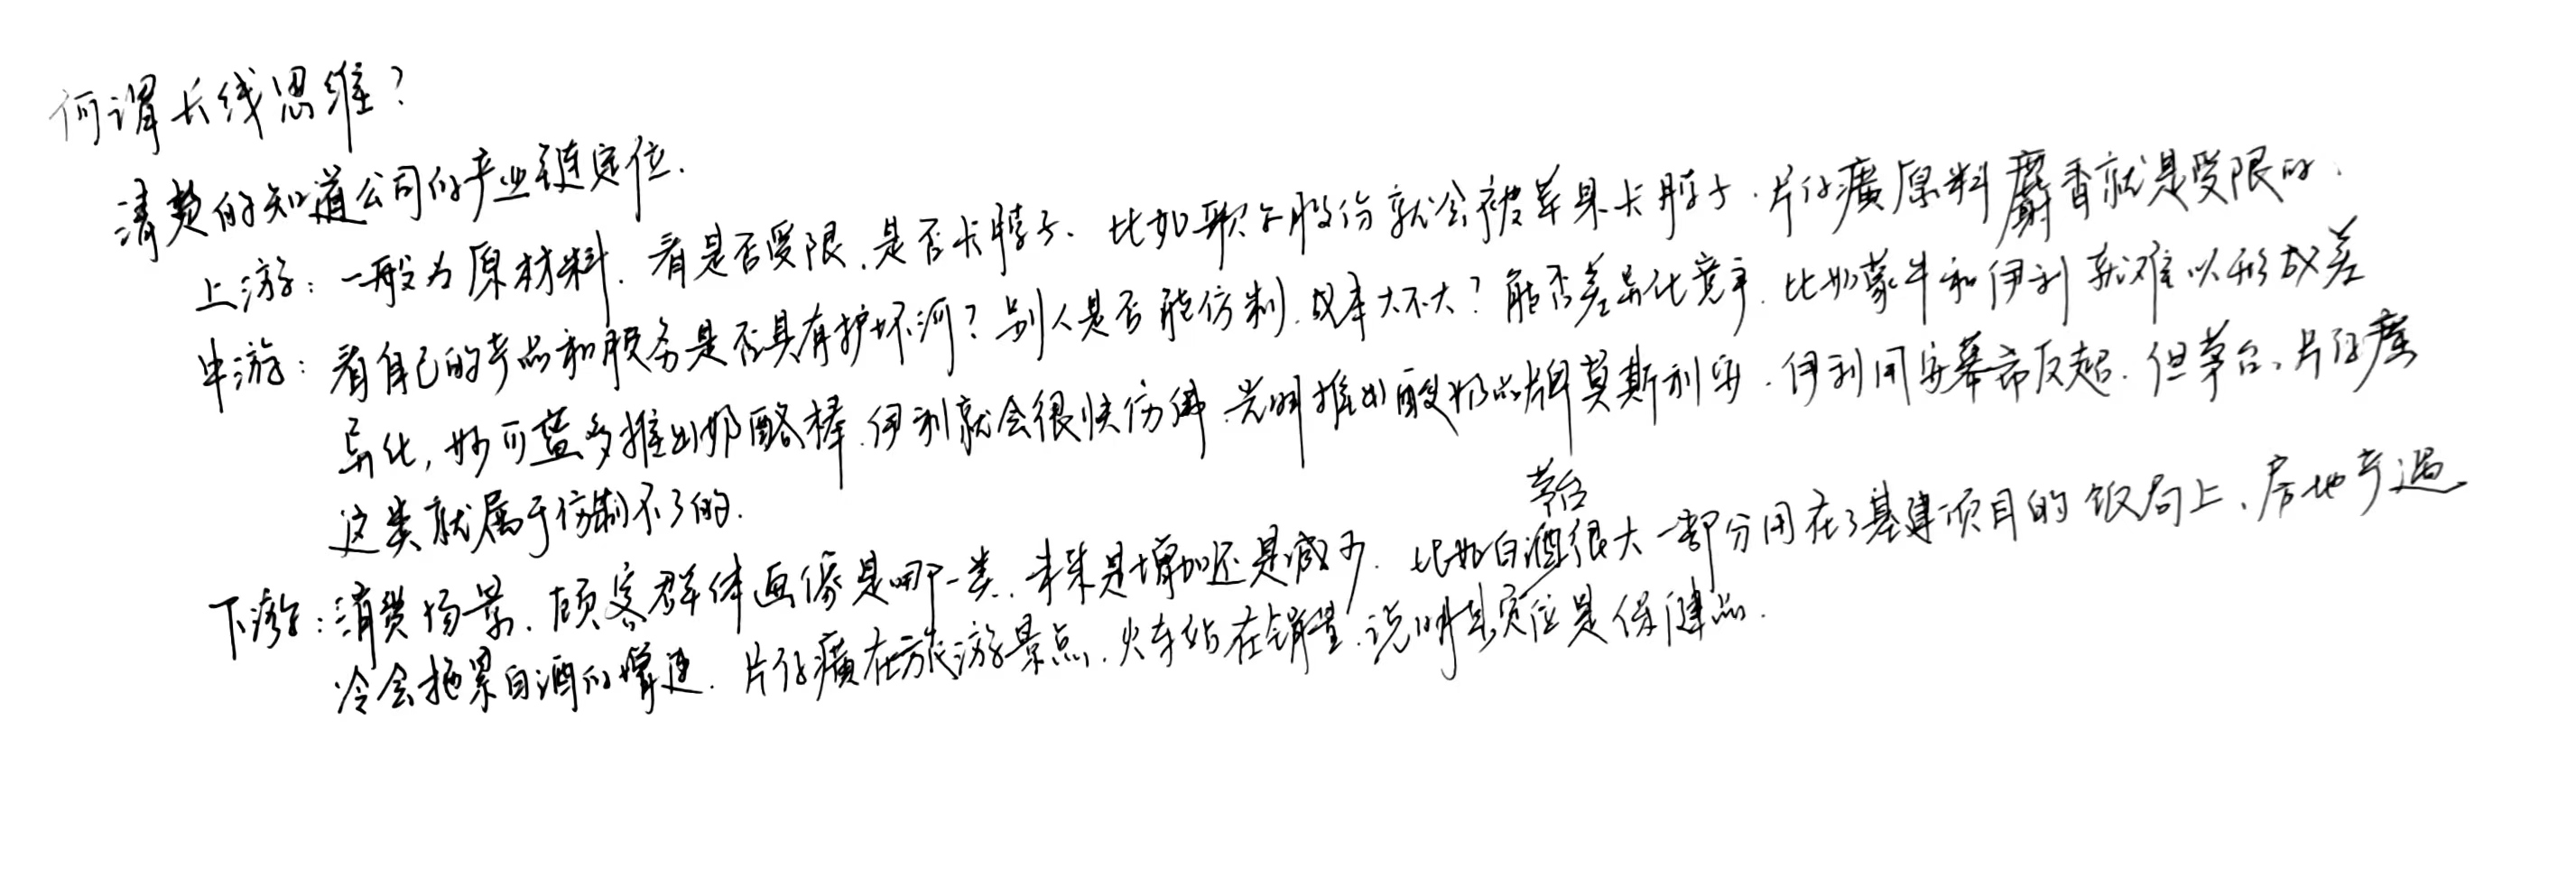 何谓长线思维？
清楚的知道公司的产业链定位.
上游：一般为原材料. 看是否受限.是否卡脖子. 比如歌尔股份就会被苹果卡脖子.片仔癀原料麝香就是受限的.
中游：看自己的产品和服务是否具有护城河？别人是否能仿制.成本大不大？能否差异化竞争.比如蒙牛和伊利就难以形成差
异化，妙可蓝多推出奶酪棒.伊利就会很快仿佛.光明推出酸奶品牌莫斯利安.伊利用安慕希反超.但茅台、片仔癀
这类就属于仿制不了的.
茅台
下游：消费场景.顾客群体画像是哪一类.未来是增加还是减少.比如白酒很大一部分用在了基建项目的饭局上、房地产遇
冷会拖累白酒的增速.片仔癀在旅游景点.火车站在销量.说明其定位是保健品.